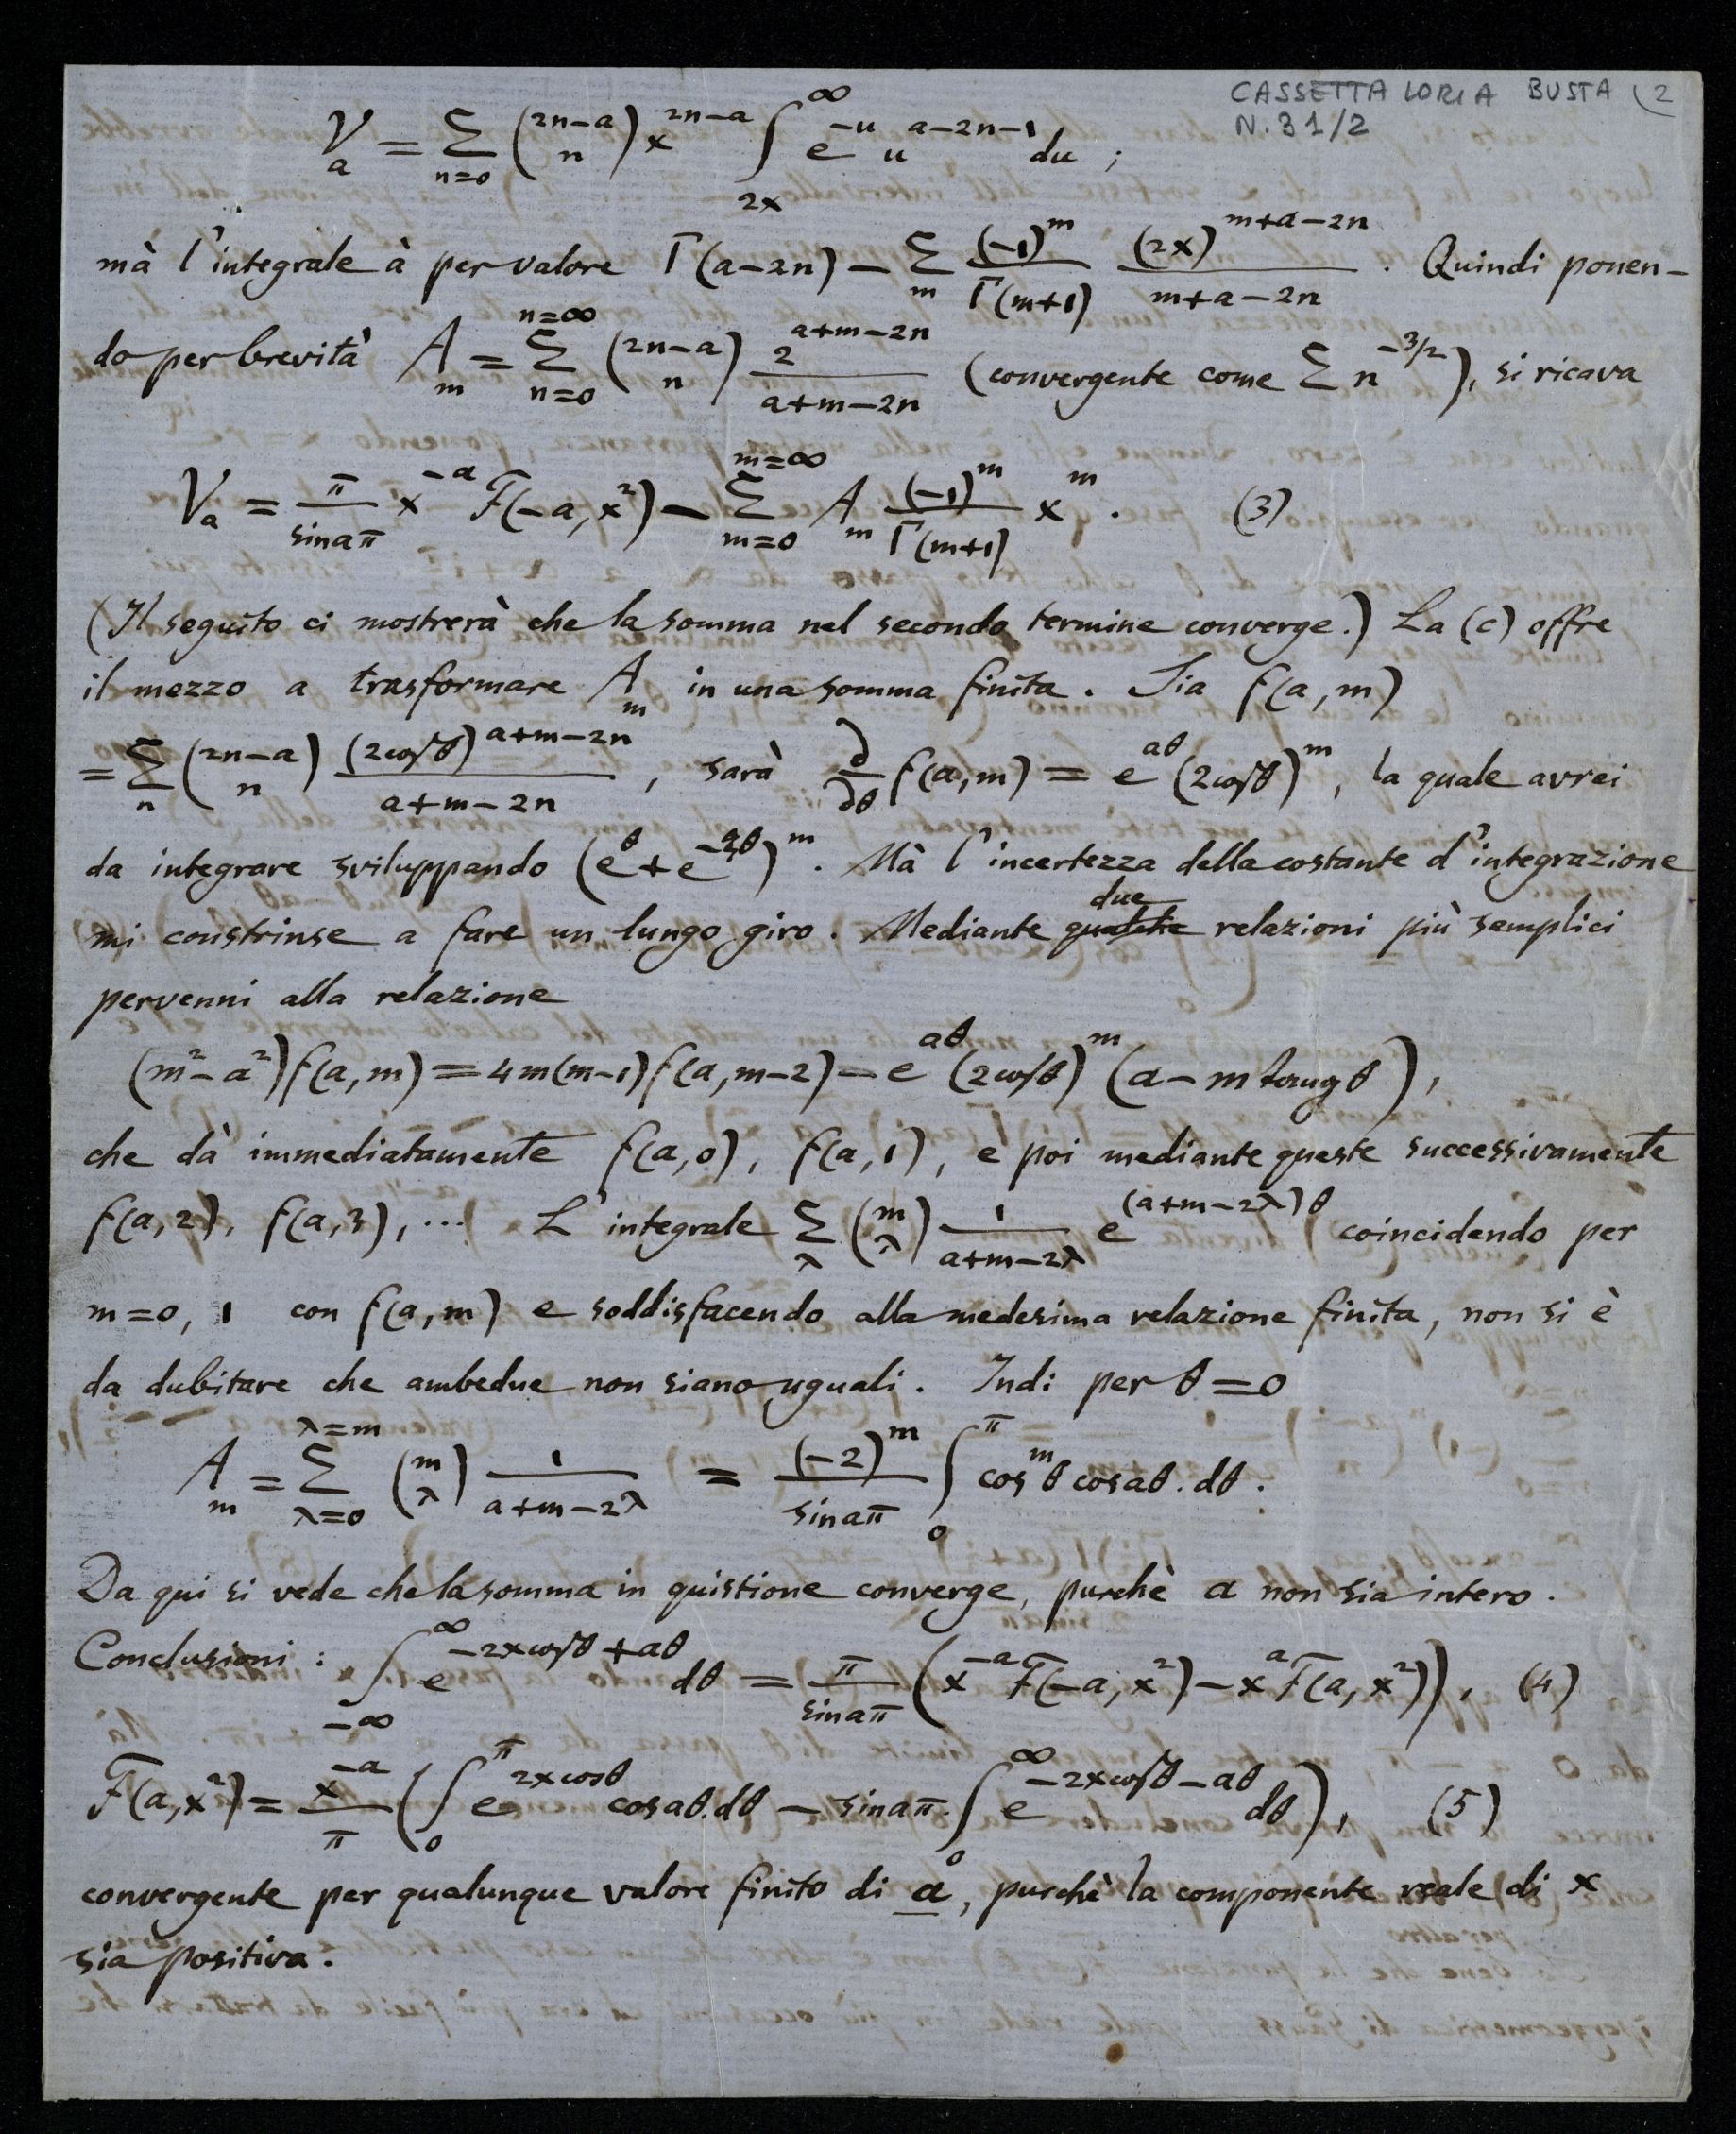 CASSETTA LORIA BUSTA (2
N.31/2
V_a = Σ_{n=0} (2n-a over n) x^{2n-a} ∫_{2x}^{∞} e^{-u} u^{a-2n-1} du ;
mà l'integrale à per valore Γ(a-2n) - Σ_m (-1)^m/Γ(m+1) (2x)^{m+a-2n}/(m+a-2n) . Quindi ponen-
do per brevità A_m = Σ_{n=0}^{n=∞} (2n-a over n) 2^{a+m-2n}/(a+m-2n) (convergente come Σ n^{-3/2}), si ricava
V_a = π/sin aπ x^{-a} F(-a, x²) - Σ_{m=0}^{m=∞} A_m (-1)^m/Γ(m+1) x^m . (3)
(Il seguito ci mostrerà che la somma nel secondo termine converge.) La (c) offre
il mezzo a trasformare A_m in una somma finita. Sia f(a, m)
= Σ_n (2n-a over n) (2cosfθ)^{a+m-2n}/(a+m-2n) , sarà ∂/∂θ f(a,m) = e^{aθ} (2cosfθ)^m , la quale avrei
da integrare sviluppando (e^θ + e^{-θ})^m . Mà l'incertezza della costante d'integrazione
mi constrinse a fare un lungo giro. Mediante due relazioni più semplici
pervenni alla relazione
(m²-a²)f(a,m) = 4m(m-1)f(a,m-2) - e^{aθ} (2cosfθ)^m (a - m tangθ) ,
che dà immediatamente f(a,0), f(a,1), e poi mediante queste successivamente
f(a,2), f(a,3), ... L'integrale Σ_λ (m over λ) 1/(a+m-2λ) e^{(a+m-2λ)θ} coincidendo per
m=0, 1 con f(a,m) e soddisfacendo alla medesima relazione finita, non si è
da dubitare che ambedue non siano uguali. Indi per θ=0
A_m = Σ_{λ=0}^{λ=m} (m over λ) 1/(a+m-2λ) = (-2)^m/sin aπ ∫_0^π cos^m θ cos aθ . dθ .
Da qui si vede che la somma in quistione converge, purchè a non sia intero.
Conclusioni : ∫_{-∞}^{∞} e^{-2xcosfθ+aθ} dθ = π/sin aπ (x^{-a} F(-a, x²) - x^a F(a, x²)), (4)
F(a,x²) = x^{-a}/π (∫_0^π e^{2xcosθ} cos aθ.dθ - sin aπ. ∫_0^∞ e^{-2xcosfθ-aθ} dθ), (5)
convergente per qualunque valore finito di a, purchè la componente reale di x
sia positiva.